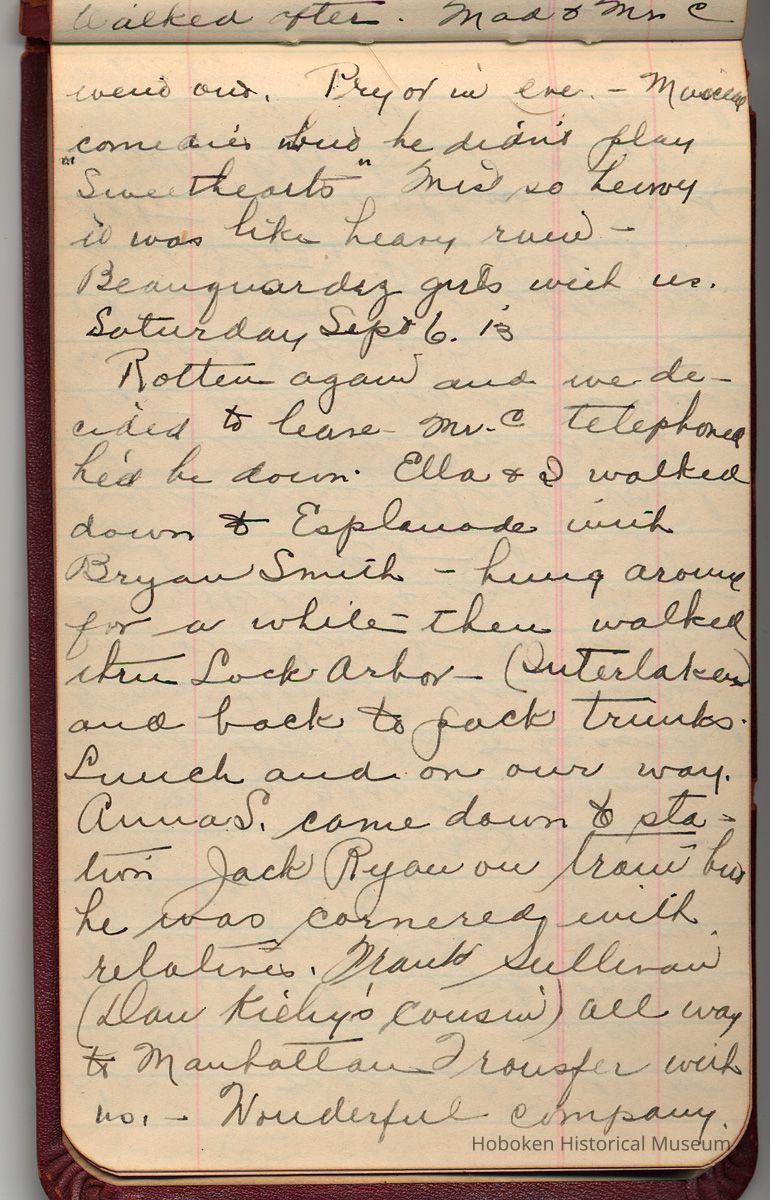 Walked after. Mad & Mrs C
went out. Pryor in eve. - Musical
comedies but he didn't play
"Sweethearts" Mist so heavy
it was like heavy rain -
Beauguardez girls with us.
Saturday Sept 6. 13
Rotten again and we de-
cided to leave - Mr. C telephoned
he'd be down. Ella & I walked
down to Esplanade with
Bryan Smith - hung around
for a while - then walked
thru Lock Arbor - (Interlaken)
and back to pack trunks.
Lunch and on our way.
Anna S. came down to sta-
tion Jack Ryan on train but
he was cornered with
relatives. Frank Sullivan
(Dan Kiely's cousin) all way
to Manhattan Transfer with
us. - Wonderful company.
Hoboken Historical Museum